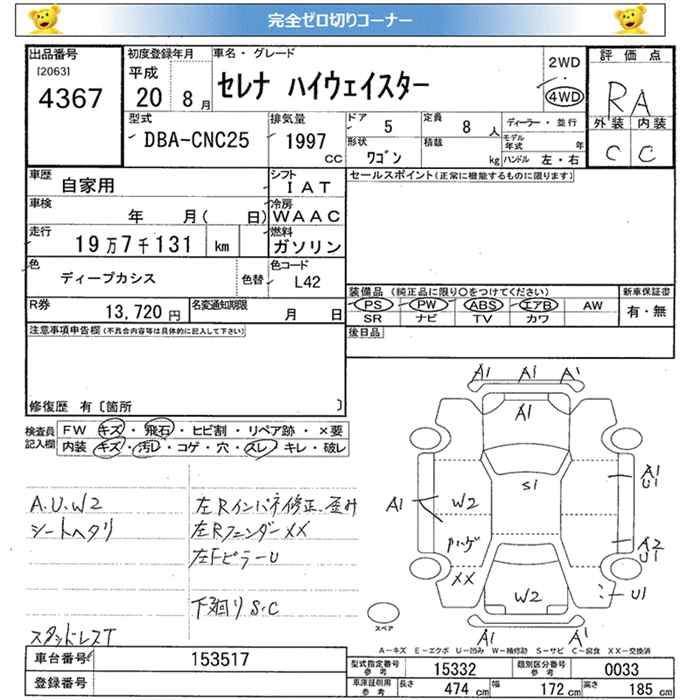 完全ゼロ切りコーナー
出品番号 [2063] 4367
初度登録年月 平成 20 8月
車名・グレード セレナ ハイウェイスター
2WD 4WD
評価点 RA
外装 内装
C C
型式 DBA-CNC25
排気量 1997 CC
ドア 5
定員 8 人
ディーラー・並行
形状 ワゴン
積載 kg
モデル年式 年
ハンドル 左・右
車歴 自家用
シフト IAT
セールスポイント(正常に機能するものに限ります)
車検 年 月( 日)
冷房 WAAC
走行 19万7千131 km
燃料 ガソリン
色 ディープカシス 色替
色コード L42
装備品 (純正品に限り○をつけてください)
新車保証書
PS PW ABS エアB AW
有・無
SR ナビ TV カワ
R券 13,720 円
名変通知期限 月 日
後日品
注意事項申告欄(不具合内容等は具体的に記入して下さい)
修復歴 有〔箇所 〕
検査員記入欄
FW キズ・飛石・ヒビ割・リペア跡・×要
内装 キズ・汚レ・コゲ・穴・スレ・キレ・破レ
A.U.W2
シートヘタリ
スタッドレスT
左Rインパネ修正、歪み
左Rフェンダー XX
左Fピラー U
下廻りS.C
A1 A1 A'
A1
S1
A1
W2
A1
U1
ハゲ
A2
U1
XX
W2
U1
A1 A'
スペア
A-キズ E-エクボ U-凹み W-補修跡 S-サビ C-腐食 XX-交換済
車台番号 153517
登録番号
型式指定番号 参考 15332
類別区分番号 参考 0033
車庫証明用 参考 長さ 474 cm 幅 172 cm 高さ 185 cm